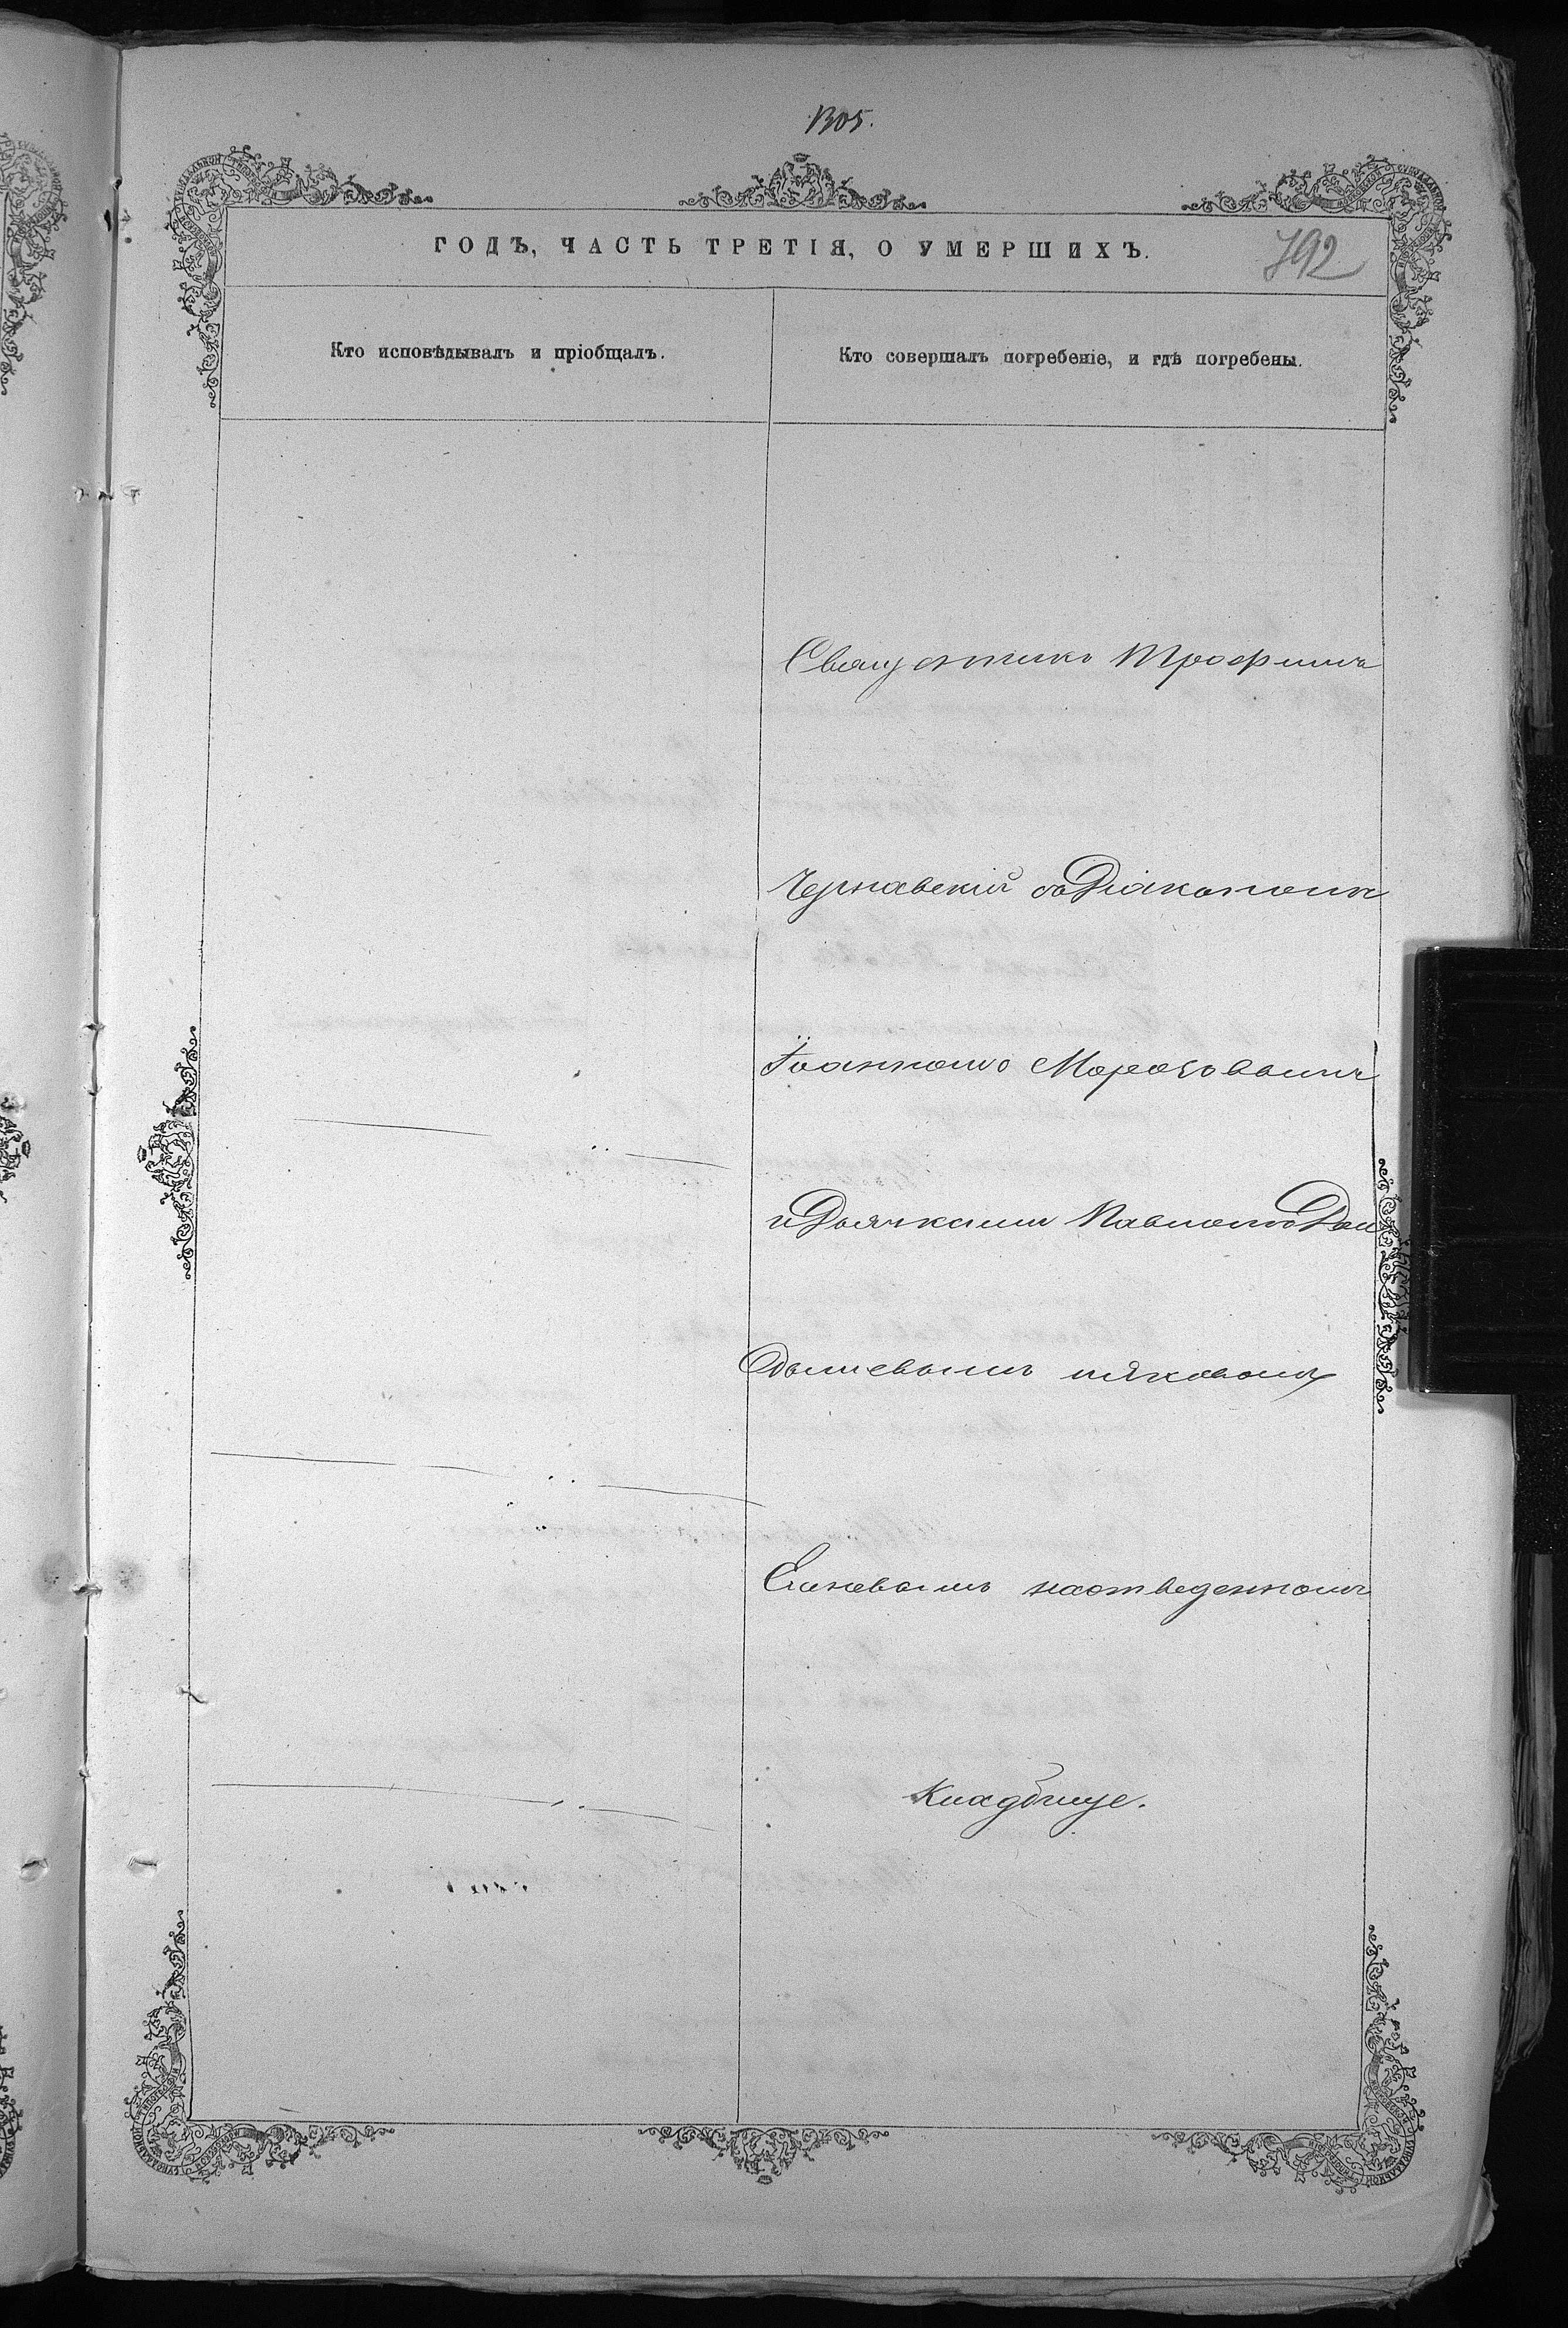 1305.
ГОДЪ, ЧАСТЬ ТРЕТІЯ, О УМЕРШИХЪ.
792
Кто исповѣдывалъ и пріобщалъ.
Кто совершалъ погребеніе, и гдѣ погребены.
Священникъ Трофимъ
Чернавскій съ Діакономъ
Іоанномъ Морозовымъ
и Дьячками Павломъ Да
выдовымъ и Яковомъ
на отведенномъ
Кладбище.